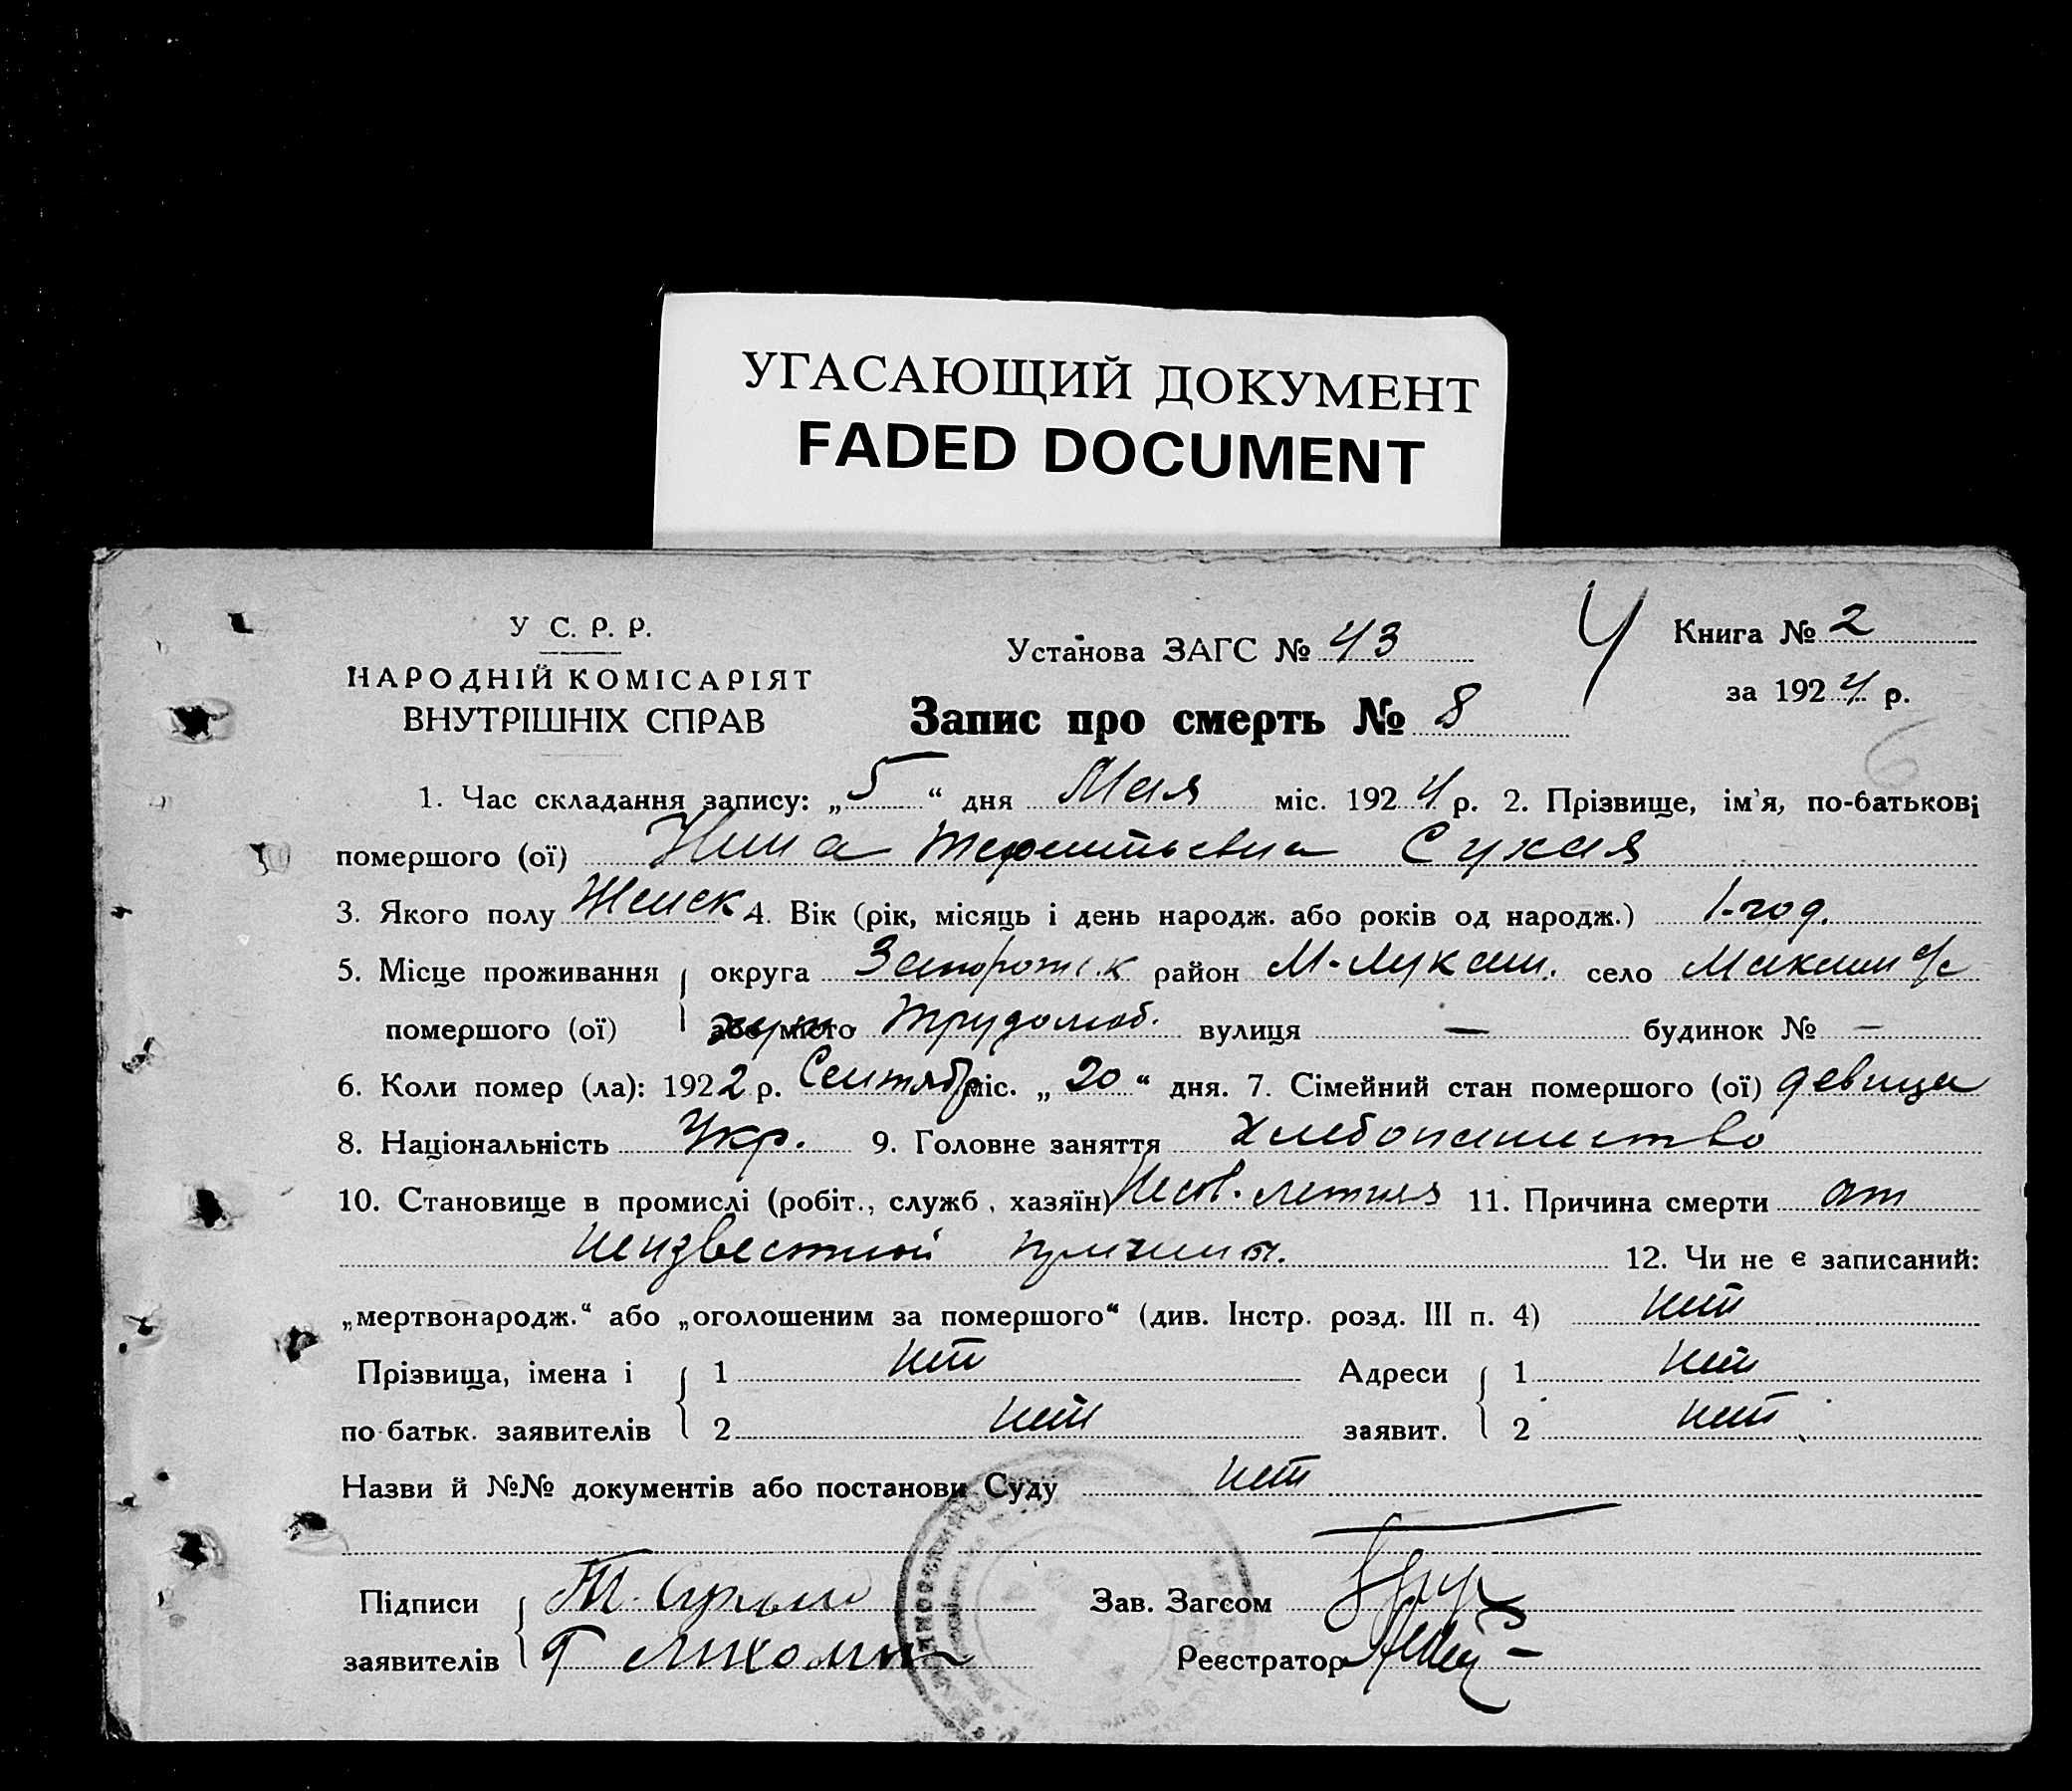 УГАСАЮЩИЙ ДОКУМЕНТ
FADED DOCUMENT
У С. Р. Р.
НАРОДНІЙ КОМІСАРІЯТ
ВНУТРІШНІХ СПРАВ
Установа ЗАГС № 43
Ч
Книга № 2
за 1924 р.
Запис про смерть № 8
6
1. Час складання запису: „5“ дня Мая міс. 1924 р. 2. Прізвище, ім’я, по-батькові
помершого (ої) Нина Терентьевна Сухая
3. Якого полу Женск 4. Вік (рік, місяць і день народж. або років од народж.) 1-год.
5. Місце проживання округа Запорожск район М-Лукаш. село Микеш с/с
помершого (ої) місто Трудолюб. вулиця — будинок № —
6. Коли помер (ла): 1922 р. Сентябр міс. „20“ дня. 7. Сімейний стан помершого (ої) девица
8. Національність Укр. 9. Головне заняття Хлебопашество
10. Становище в промислі (робіт., служб, хазяїн) Несов. летняя 11. Причина смерти от
неизвестной причины. 12. Чи не є записаний:
„мертвонародж.“ або „оголошеним за помершого“ (див. Інстр. розд. III п. 4) нет
Прізвища, імена і 1 нет Адреси 1 нет
по-батьк. заявителів 2 нет заявит. 2 нет
Назви й №№ документів або постанови Суду нет
Підписи Т. Зав. Загсом
заявителів Г Реєстратор